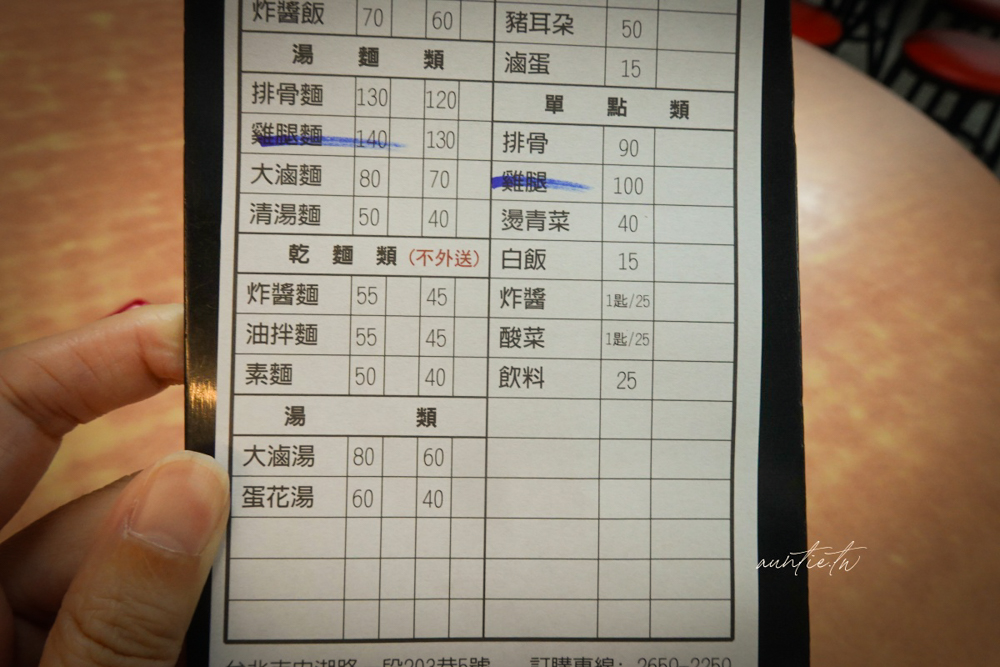 炸醬飯 70 60
湯 麵 類
排骨麵 130 120
雞腿麵 140 130
大滷麵 80 70
清湯麵 50 40
乾 麵 類 (不外送)
炸醬麵 55 45
油拌麵 55 45
素麵 50 40
湯 類
大滷湯 80 60
蛋花湯 60 40
豬耳朵 50
滷蛋 15
單 點 類
排骨 90
雞腿 100
燙青菜 40
白飯 15
炸醬 1匙/25
酸菜 1匙/25
飲料 25
台北市內湖路 段203巷5號 訂購專線: 2650-2250
auntie.tw